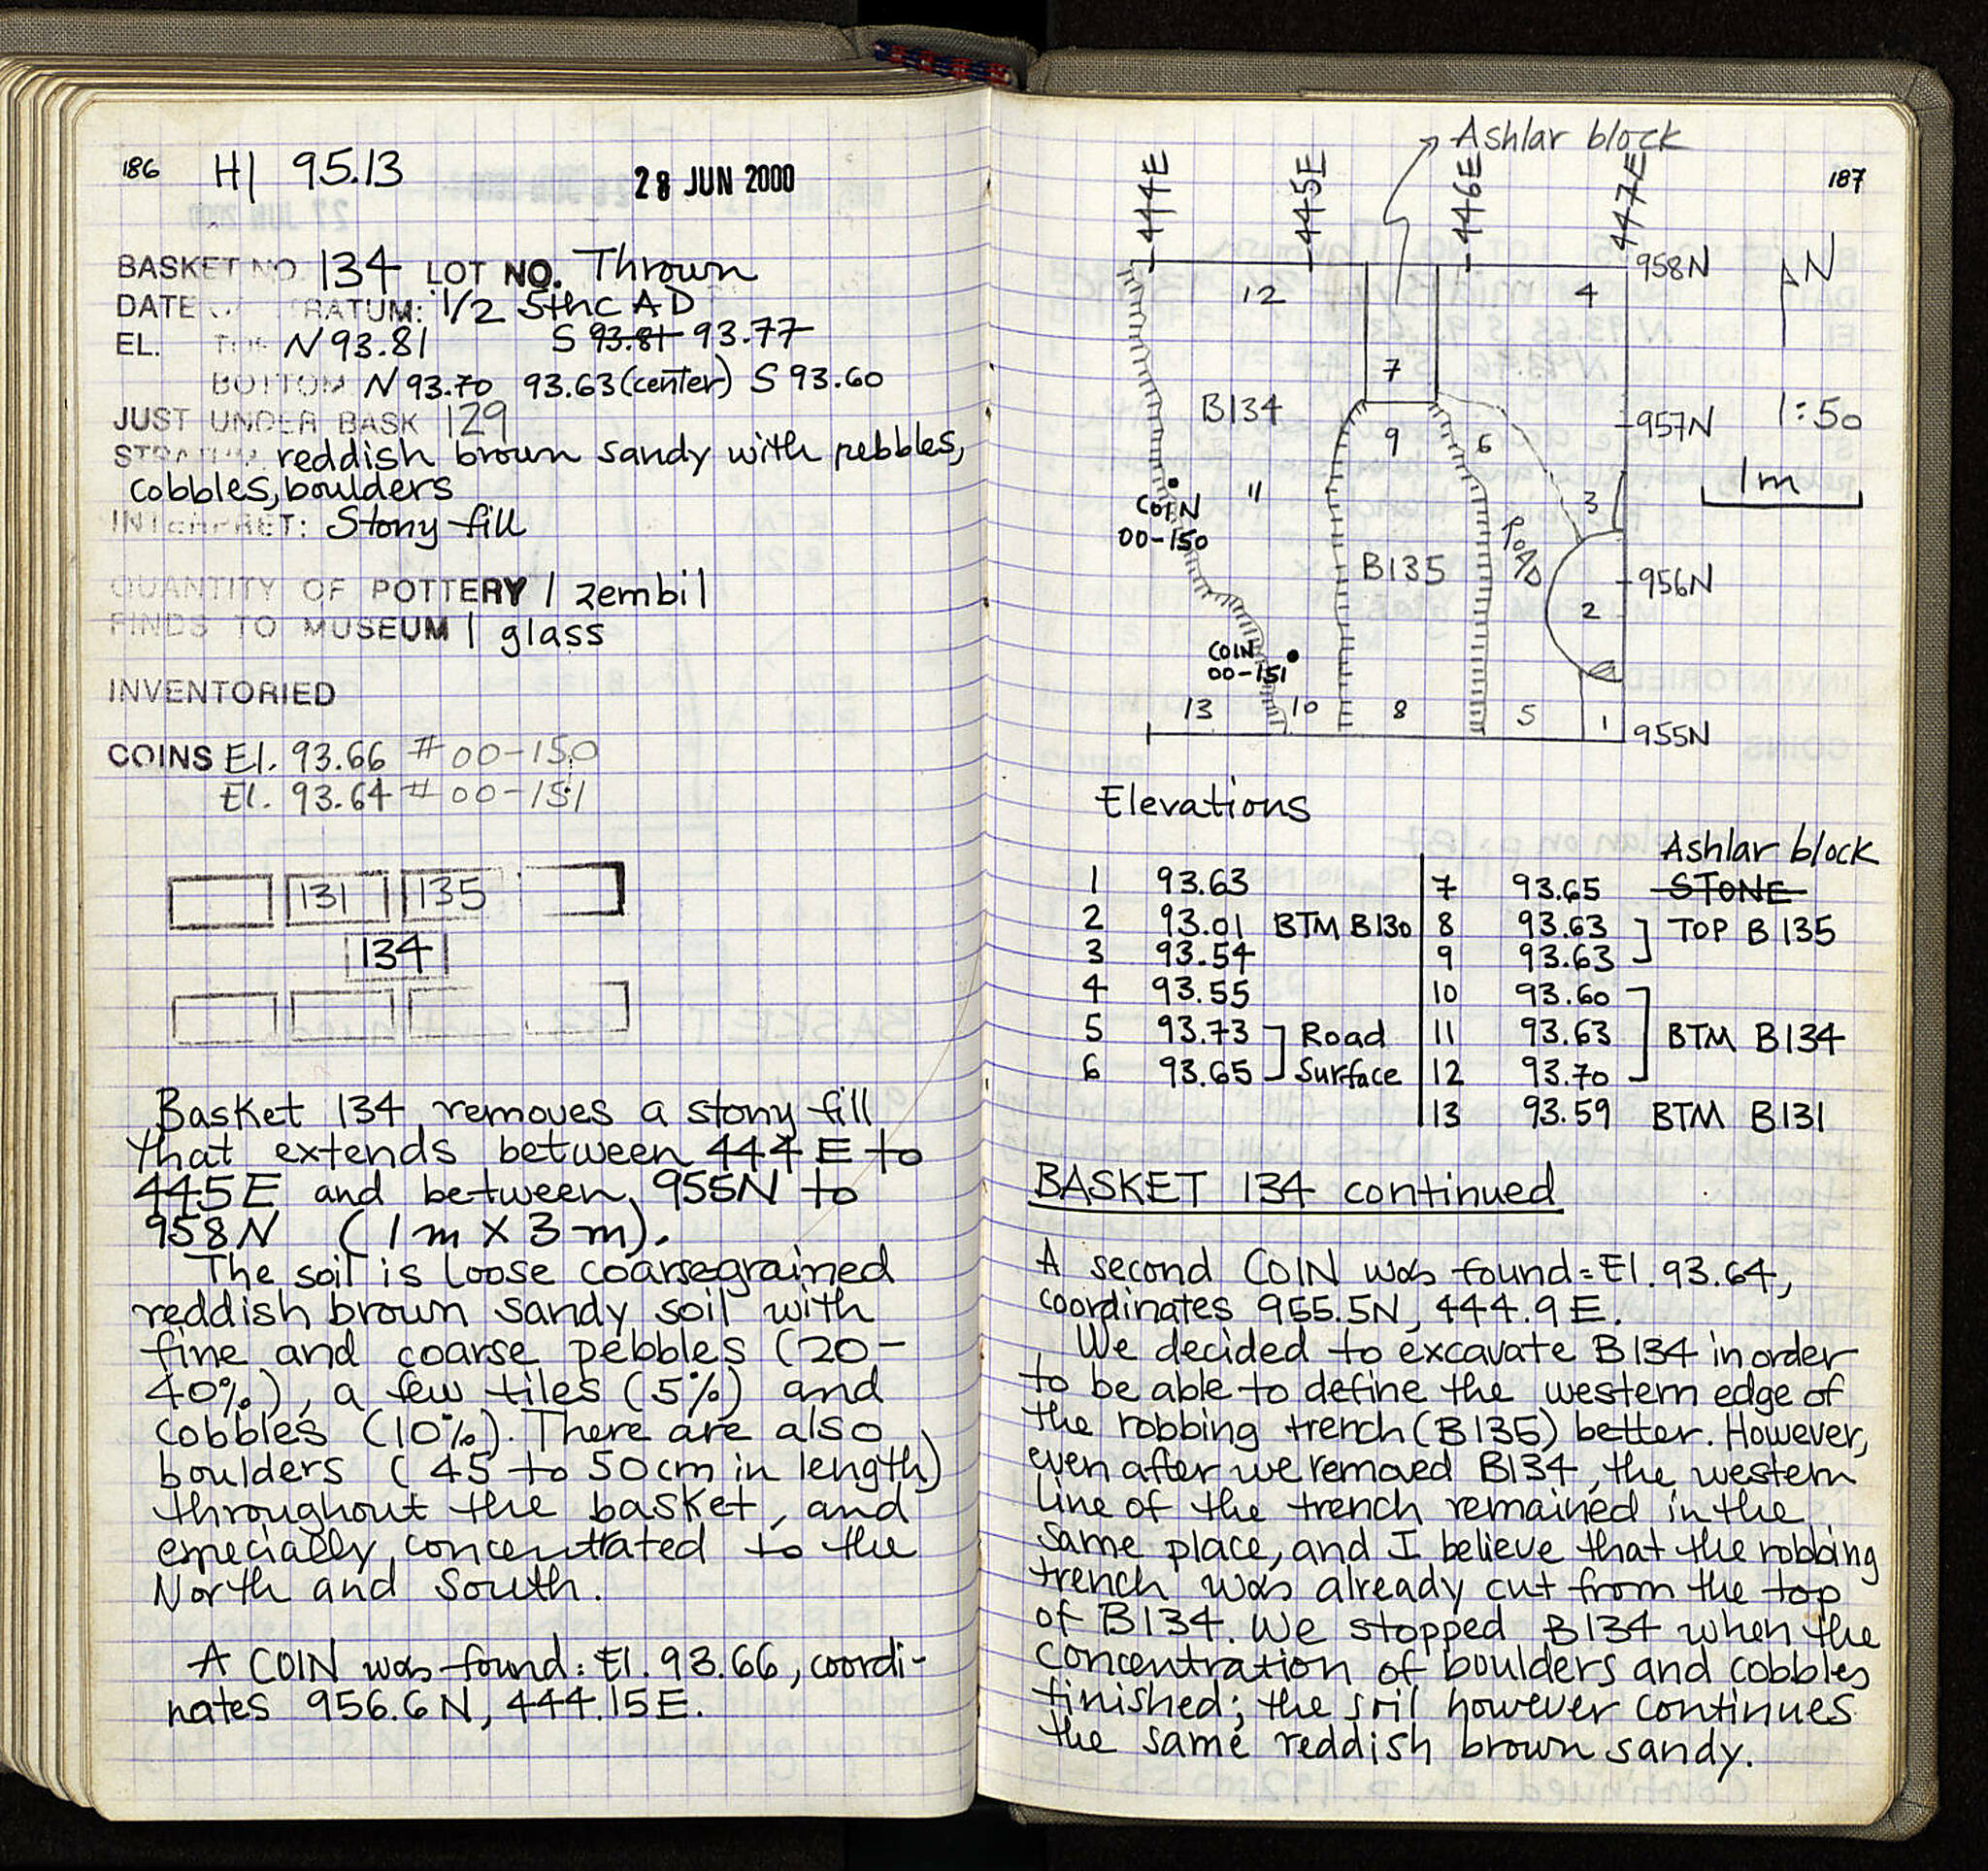 186 H1 95.13 28 JUN 2000
BASKET NO. 134 LOT NO. Thrown
DATE RATUM: 1/2 5thc AD
EL. TOP N 93.81 S 93.81 93.77
BOTTOM N 93.70 93.63 (center) S 93.60
JUST UNDER BASK 129
STRATUM reddish brown sandy with pebbles,
cobbles, boulders
INTERPRET: Stony fill
QUANTITY OF POTTERY 1 zembil
FINDS TO MUSEUM 1 glass
INVENTORIED
COINS El. 93.66 # 00-150
El. 93.64 # 00-151
131 135
134
Basket 134 removes a stony fill
that extends between 444E to
445E and between 955N to
958N (1m X 3m).
The soil is loose coarsegrained
reddish brown sandy soil with
fine and coarse pebbles (20-
40%), a few tiles (5%) and
cobbles (10%). There are also
boulders (45 to 50cm in length)
throughout the basket, and
especially concentrated to the
North and South.
A COIN was found: El. 93.66, coordi-
nates 956.6N, 444.15E.
187
Ashlar block
444E 445E 446E 447E
958N N
12 4
7
B134 957N 1:50
9 6
1m
11 3
COIN
00-150
Road
B135 956N
2
COIN
00-151
13 10 8 5 1 955N
Elevations
Ashlar block
1 93.63 7 93.65 STONE
2 93.01 BTM B130 8 93.63 TOP B135
3 93.54 9 93.63
4 93.55 10 93.60
5 93.73 Road 11 93.63 BTM B134
6 93.65 Surface 12 93.70
13 93.59 BTM B131
BASKET 134 continued
A second COIN was found: El. 93.64,
coordinates 955.5N, 444.9E.
We decided to excavate B134 in order
to be able to define the western edge of
the robbing trench (B135) better. However,
even after we removed B134, the western
line of the trench remained in the
same place, and I believe that the robbing
trench was already cut from the top
of B134. We stopped B134 when the
concentration of boulders and cobbles
finished; the soil however continues
the same reddish brown sandy.